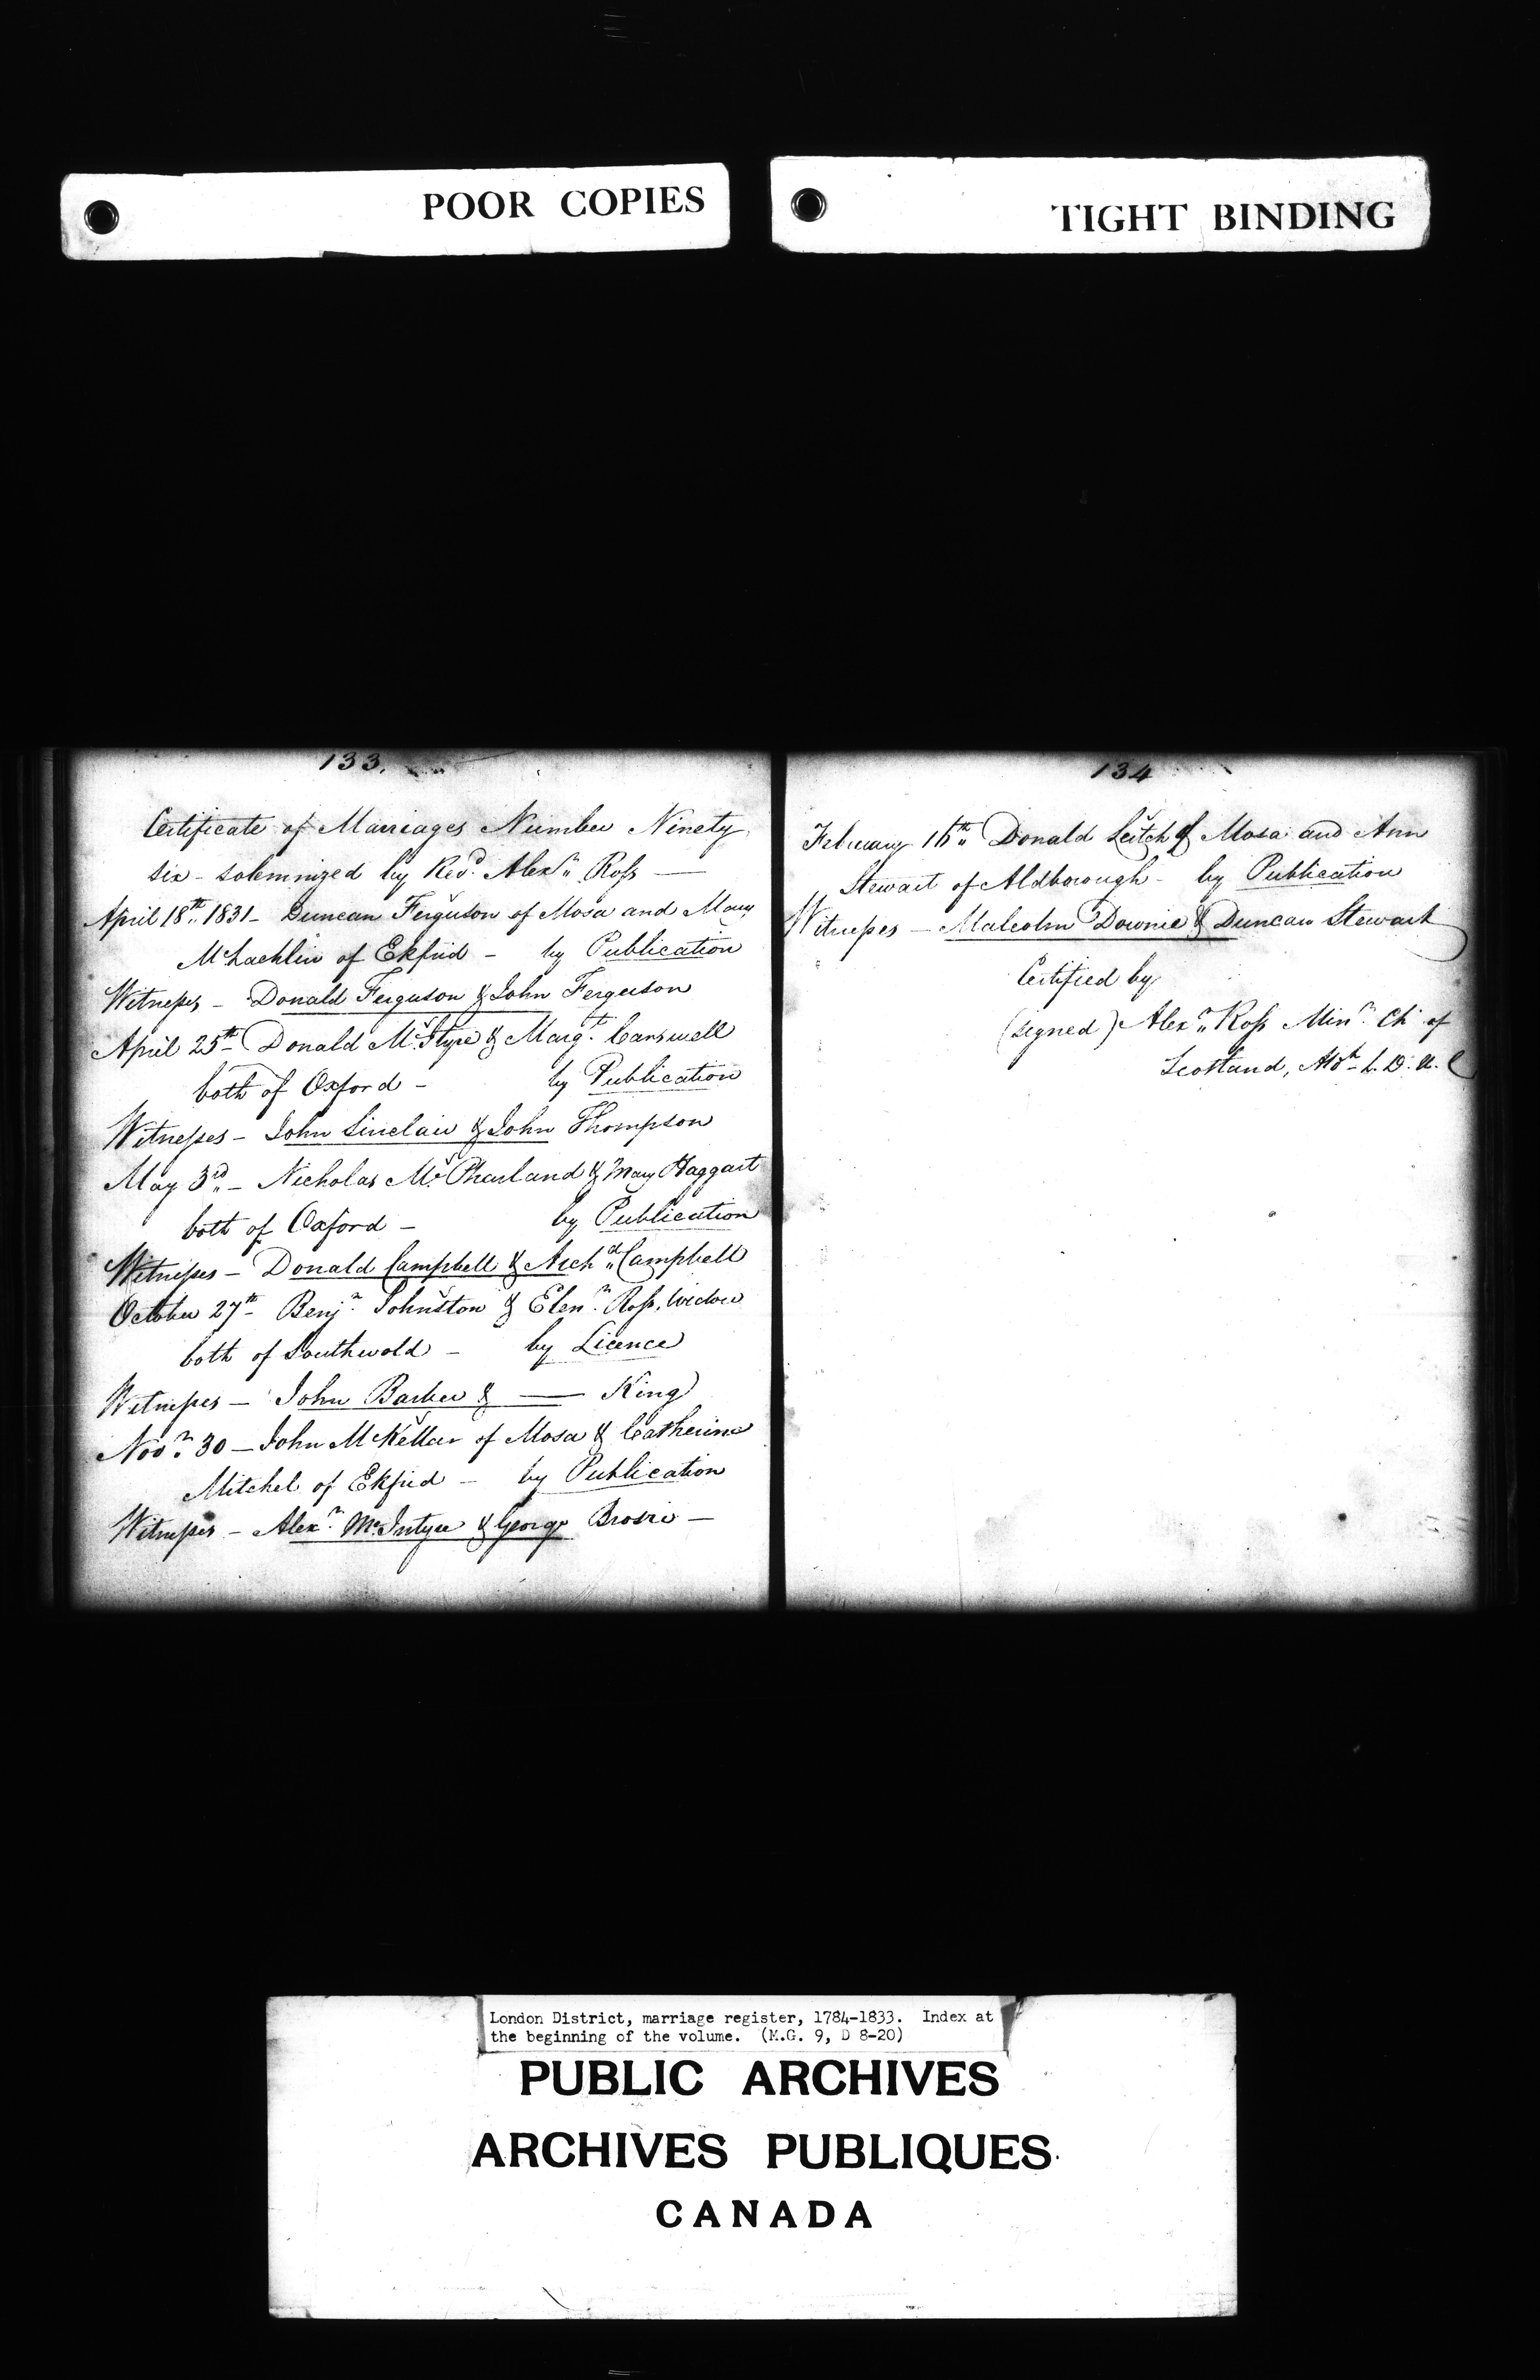 POOR COPIES
TIGHT BINDING
133.
Certificate of Marriages Number Ninety
six - solemnized by Revd. Alexr. Ross —
April 18th. 1831 - Duncan Ferguson of Mosa and Mary
McLachlin of Ekfrid - by Publication
Witnesses - Donald Ferguson & John Ferguson
April 25th - Donald McItyre & Margt. Carswell
both of Oxford - by Publication
Witnesses - John Sinclair & John Thompson
May 3rd. - Nicholas McPharland & Mary Haggart
both of Oxford - by Publication
Witnesses - Donald Campbell & Archd. Campbell
October 27th - Benjn. Johnston & Elenr. Ross, Widow
both of Southwold - by Licence
Witnesses - John Barber & — King
Novr. 30 - John McKellar of Mosa & Catherine
Mitchel of Ekfrid - by Publication
Witnesses - Alexr. McIntyre & George -
134
February 16th. Donald Leitch of Mosa and Ann
Stewart of Aldborough - by Publication
Witnesses - Malcolm Downie & Duncan Stewart
Certified by
(signed) Alexr. Ross Minr. Ch. of
Scotland, L. D. U. C
London District, marriage register, 1784-1833. Index at
the beginning of the volume. (M.G. 9, D 8-20)
PUBLIC ARCHIVES
ARCHIVES PUBLIQUES
CANADA